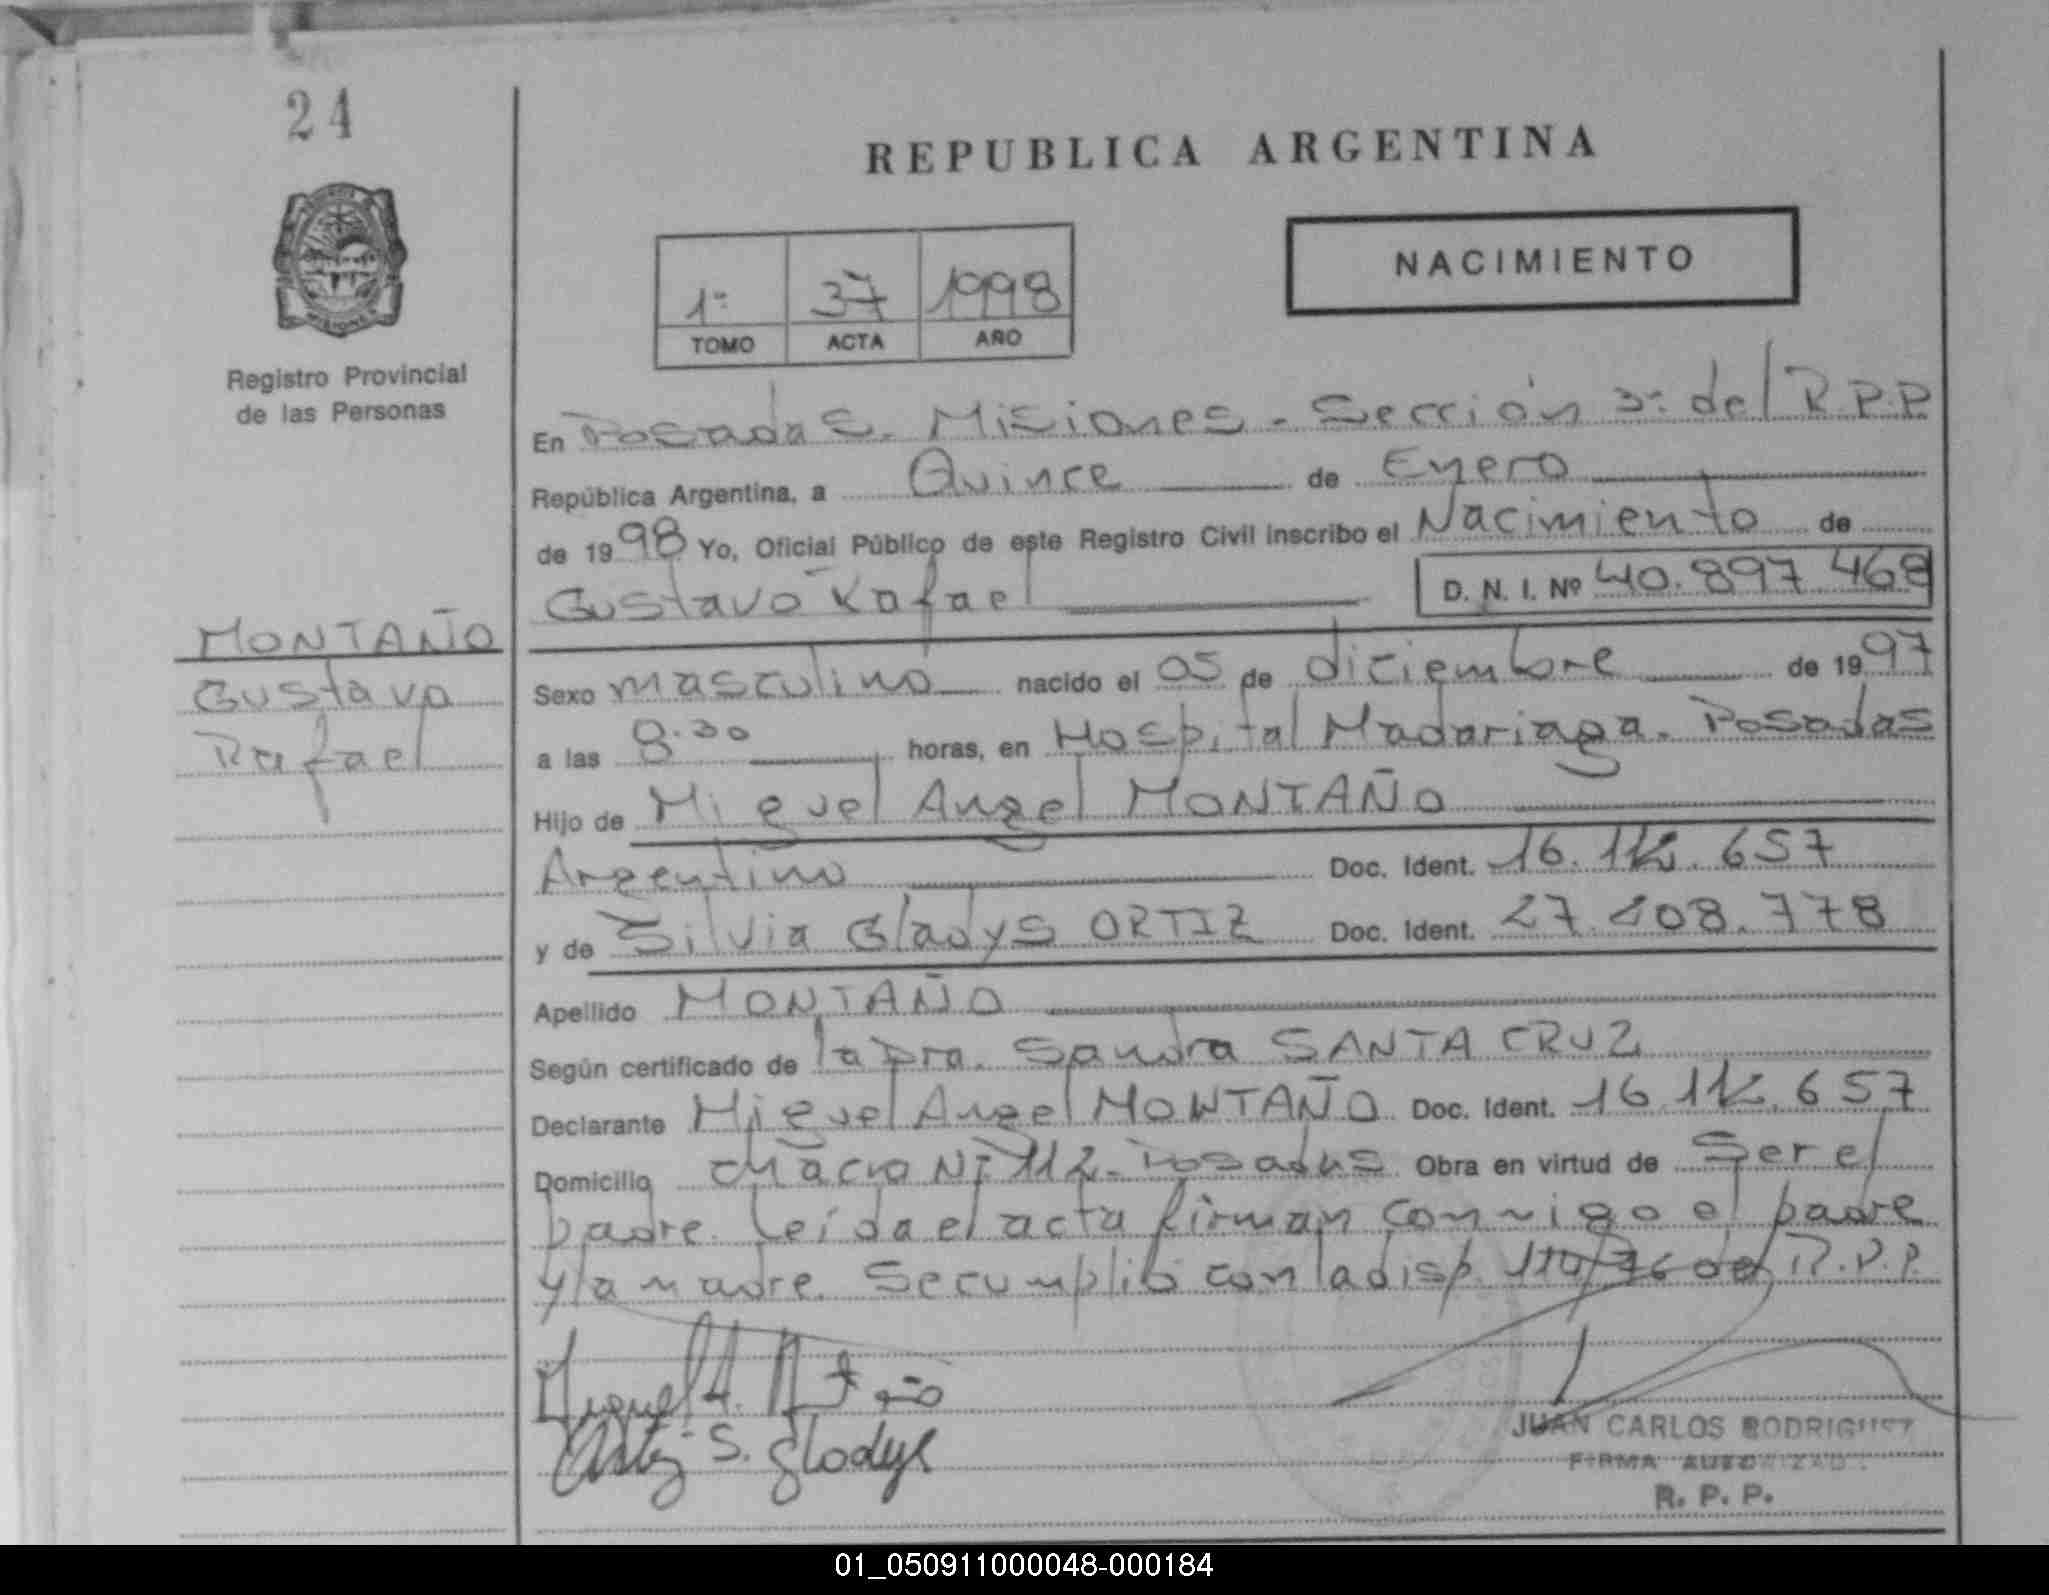 24
REPUBLICA ARGENTINA
NACIMIENTO
1º 37 1998
TOMO ACTA AÑO
Registro Provincial
de las Personas
En Posadas. Misiones - Sección 3ª del R.P.P
República Argentina, a Quince de Enero
de 1998 Yo, Oficial Público de este Registro Civil inscribo el Nacimiento de
Gustavo Rafael D. N. I. Nº 40.897.468
MONTAÑO
Gustavo
Rafael
Sexo masculino nacido el 05 de diciembre de 1997
a las 8.30 horas, en Hospital Madariaga. Posadas
Hijo de Miguel Angel MONTAÑO
Argentino Doc. Ident. 16.112.657
y de Silvia Gladys ORTIZ Doc. Ident. 27.208.778
Apellido MONTAÑO
Según certificado de la Dra. Sandra SANTA CRUZ
Declarante Miguel Angel MONTAÑO Doc. Ident. 16.112.657
Domicilio Chacra Nº 112- Posadas Obra en virtud de Ser el
padre. Leída el acta firman conmigo el padre
y la madre. Se cumplió con la disp. 110/76 del R.P.P.
Miguel A. Montaño
Ortiz S. Gladys
JUAN CARLOS RODRIGUEZ
FIRMA AUTORIZADA
R. P. P.
01_050911000048-000184